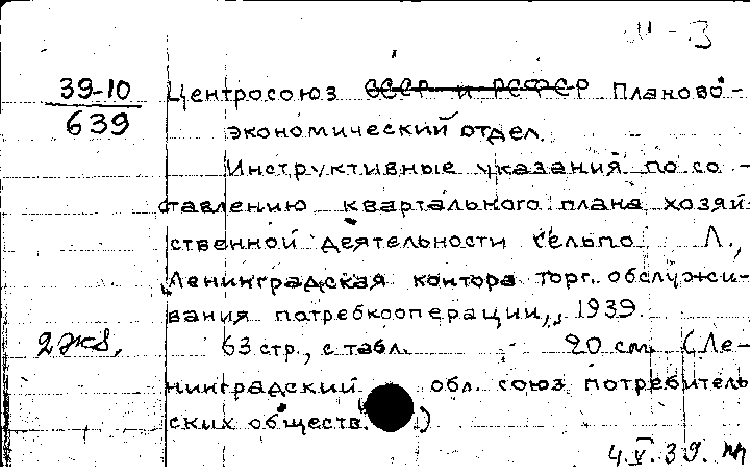 М-В
39-10 Центросоюз СССР и РСФСР Планово-
639 экономический отдел.
Инструктивные указания по со-
ставлению квартального плана хозяй
ственной деятельности сельпо Л.,
Ленинградская контора торг. обслужи-
вания потребкооперации,, 1939.
2 экз. 63 стр., с табл. 20 см. (Ле-
нинградский обл. союз потребитель
ских обществ.)
4.V.39.